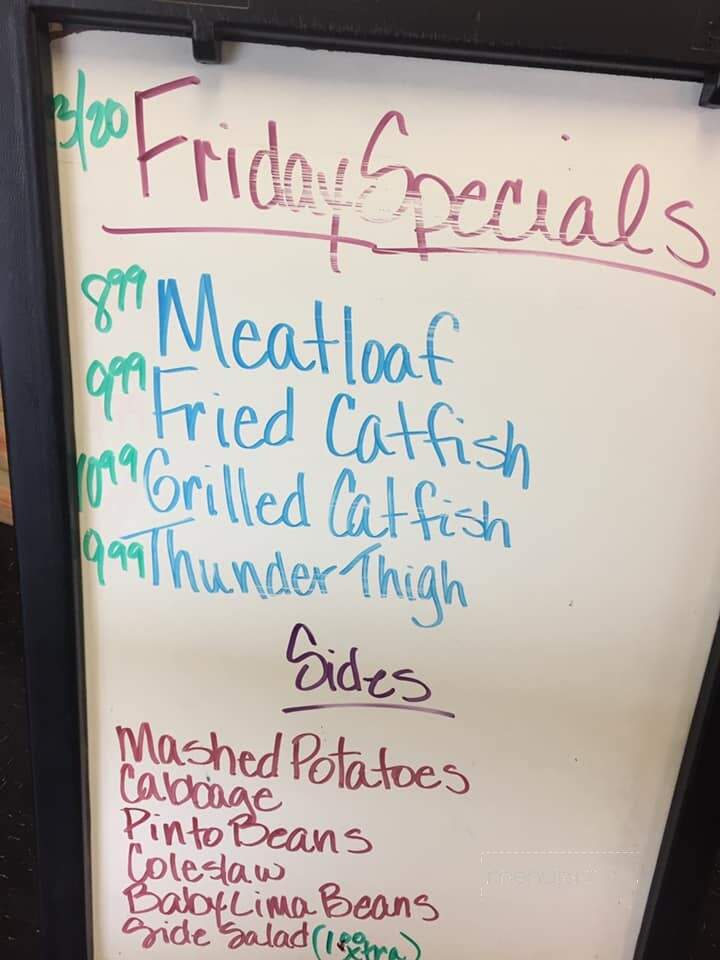 3/20 Friday Specials
8.99 Meatloaf
9.99 Fried Catfish
10.99 Grilled Catfish
9.99 Thunder Thigh
Sides
Mashed Potatoes
Cabbage
Pinto Beans
Coleslaw
Baby Lima Beans
Side Salad (1.99 xtra)